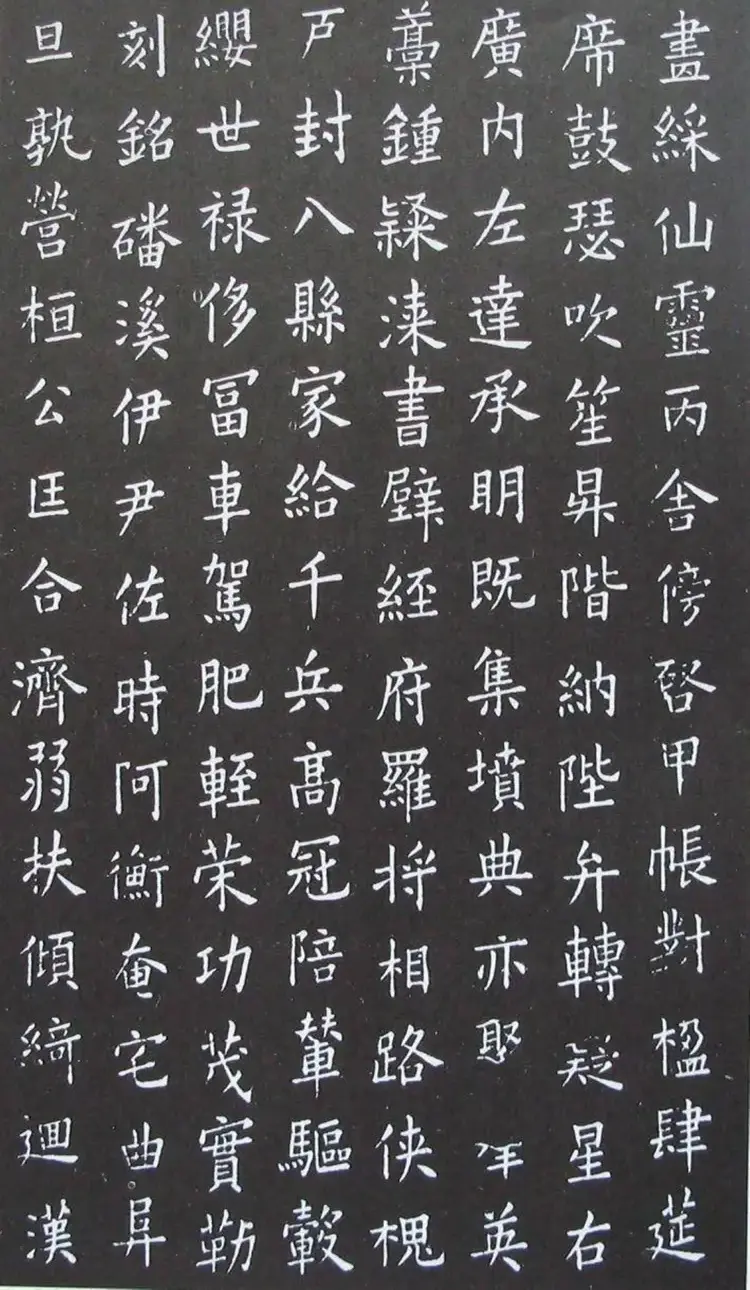 畫綵仙靈丙舍傍啓甲帳對楹肆莚
席鼓瑟吹笙昇階納陛弁轉疑星右
廣内左達承明既集墳典亦聚英
藁鍾隸漆書壁經府羅将相路俠槐
戸封八縣家給千兵高冠陪輦驅轂
纓世禄侈冨車駕肥輕策功茂實勒
刻銘磻溪伊尹佐時阿衡奄宅曲阜
旦孰營桓公匡合濟弱扶傾綺迴漢